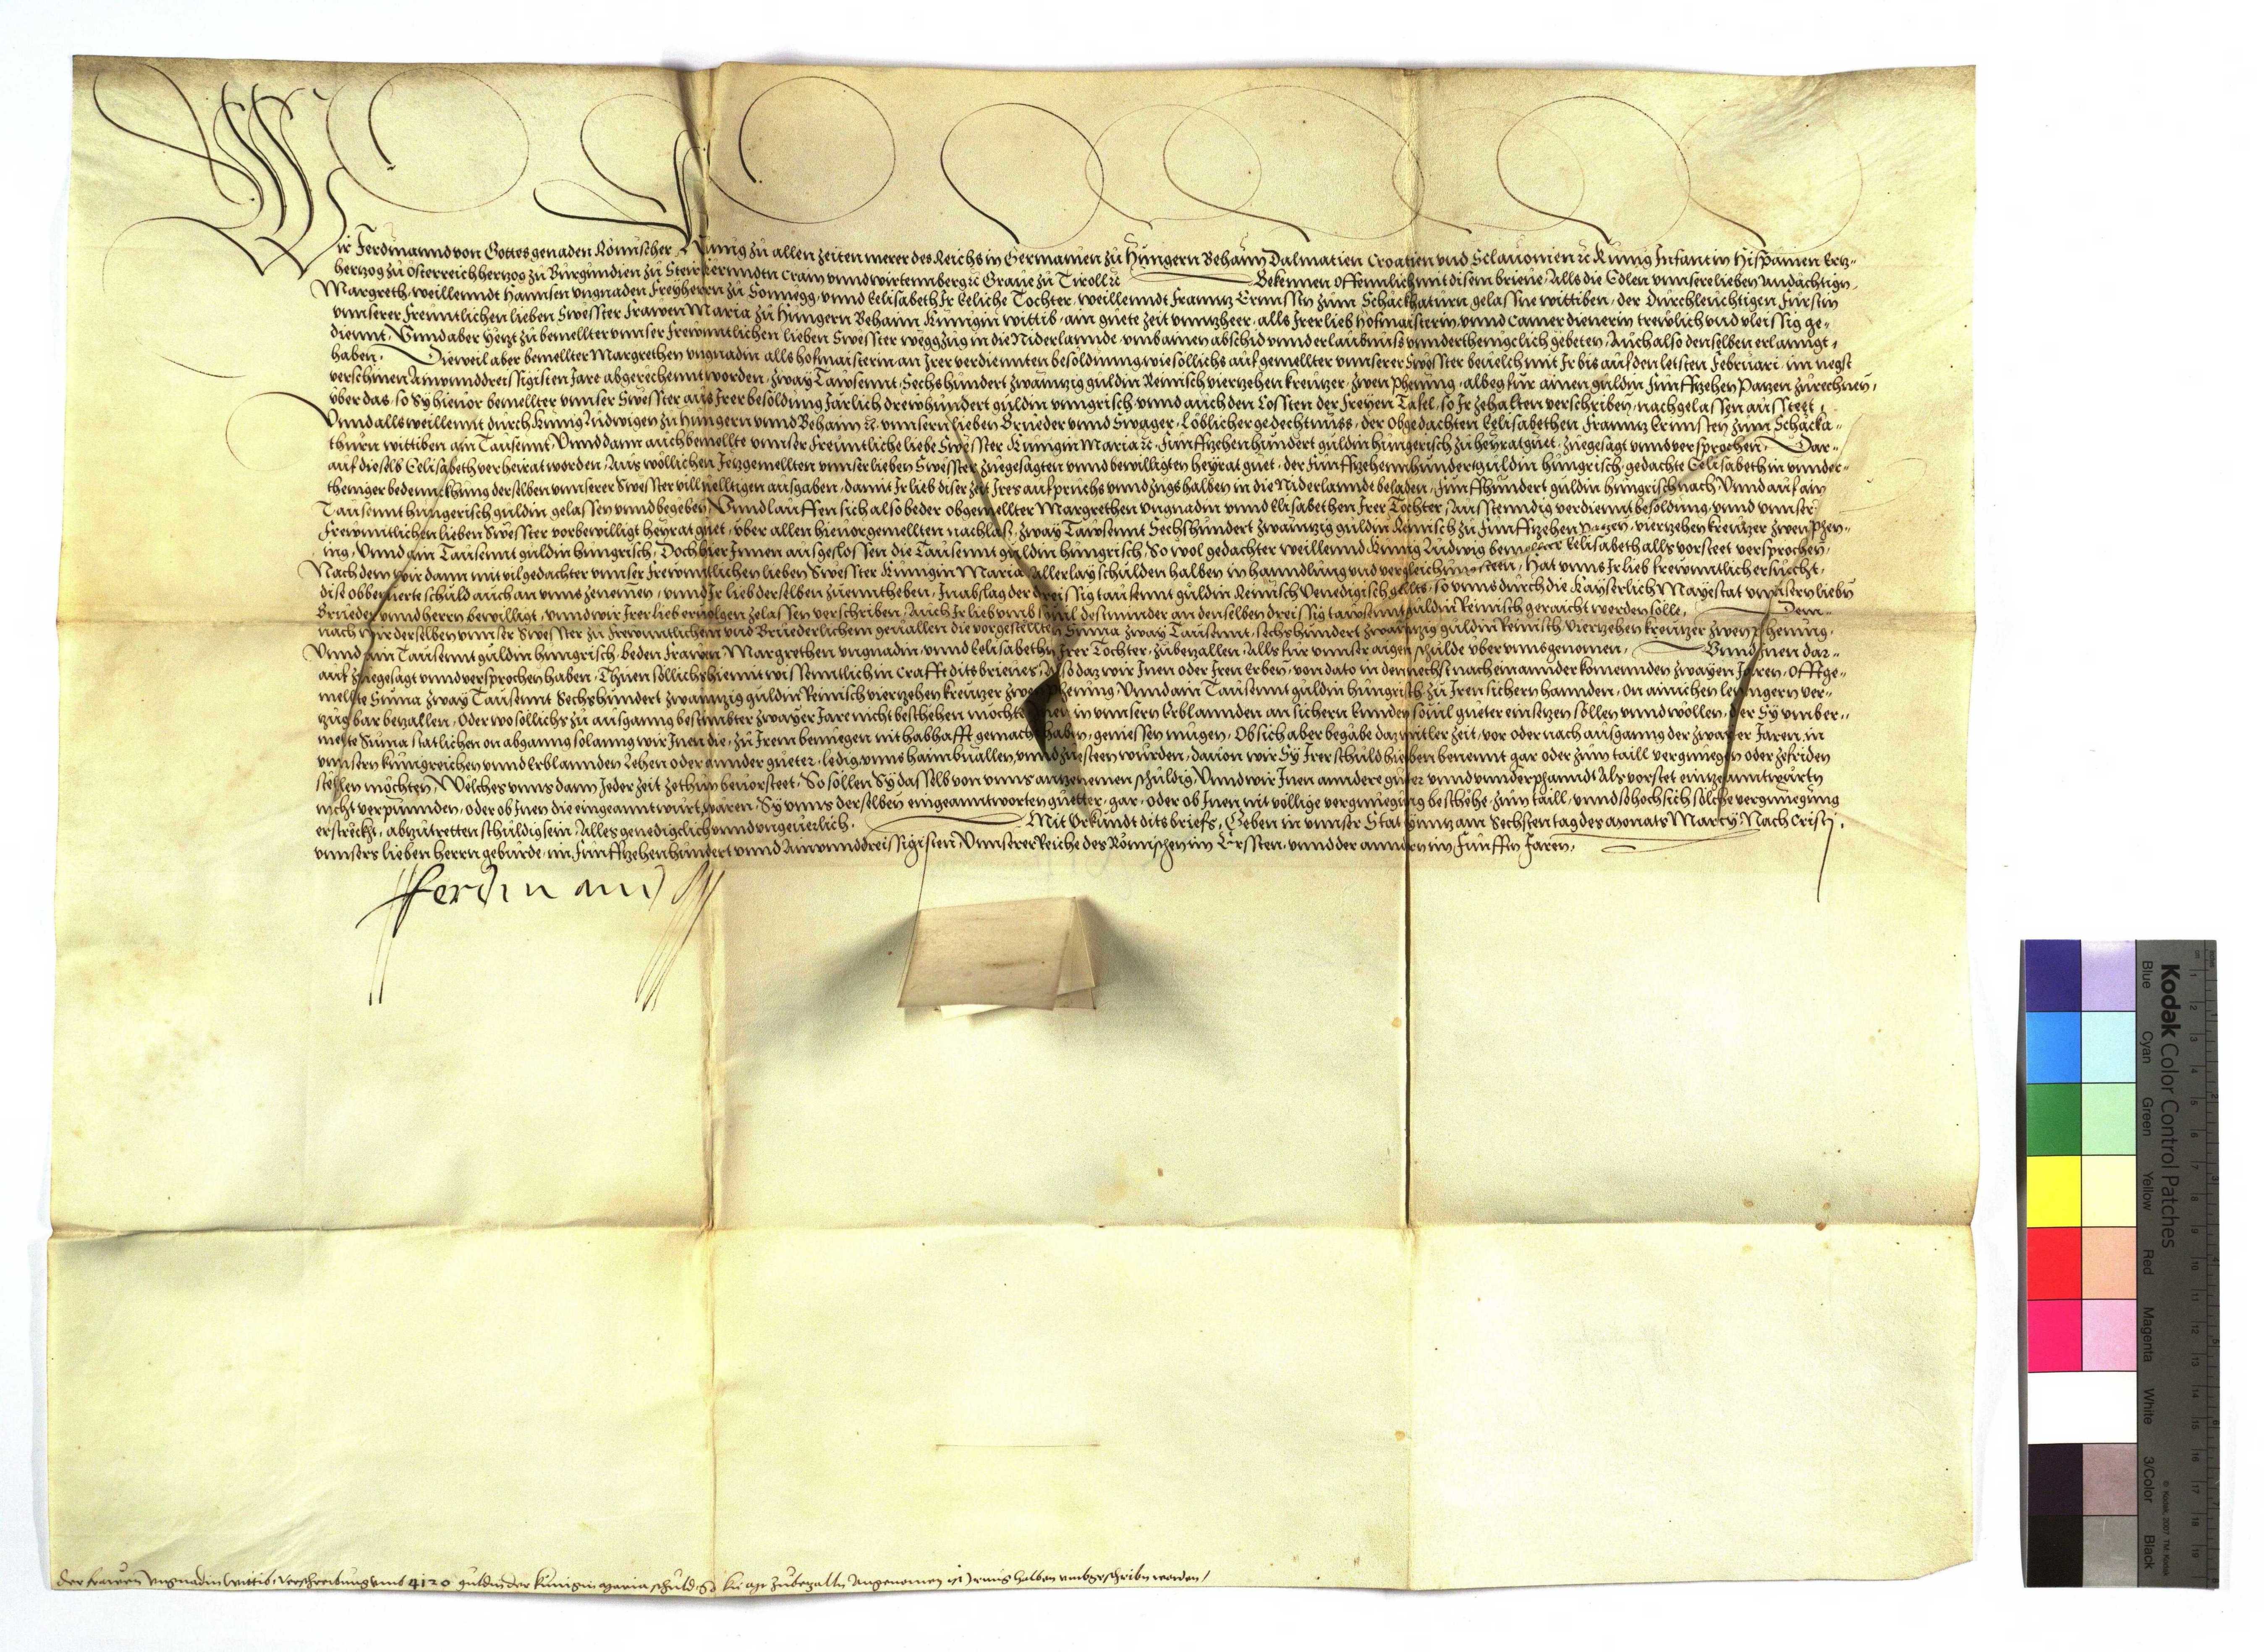 Wir Ferdinannd von Gottes genaden Römischer Kunig zu allen zeiten merer des Reichs in Germanien zu Hungern Behaim Dalmatien Croatien vnd Sclauonien ꝛc Kunig Infant in Hispanien Ertz-
hertzog zu Österreich hertzog zu Burgundien zu Steir Kerndtn Crain vnnd wirtemberg ꝛc Graue zu Tiroll ꝛc Bekennen offennlich mit disem brieue, Alls die Edlen vnnser lieben Andächtign
Margreth, weillenndt Hannsen vngnaden Freyherrn zu Sonnegg, vnnd Elisabeth Ir Eeliche Tochter, weillenndt Franntz zum gelassne wittiben, der Durchleuchtigen Fürstin
vnnserer freuntlichen lieben Swesster Frawen Maria zu Hungern Behaim Künigin wittib, ain guete zeit vnntzheer, alls Irer lieb hofmaisterin, vnnd Camerdienerin trewlich vnd vleissig ge-
diennt, Vnnd aber yetzt zu bemellter vnnser frewntlichen lieben Swesster weggzug in die Niderlannde, vmb ainen abschid vnnd erlaubnuss vnnderthenigclich gebeten, Auch also denselben erlanngt
haben. Dieweil aber bemellter Margrethen vngnadin alls hofmaisterin an Irer verdiennten besoldung, wie sollichs auf gemellter vnnserer Swesster beuelch mit Ir bis auf den letsten Februarj, im negst
verschinen Ainunddreissigisten Jare abgerechennt worden, zway Tawsennt, Sechshundert zwaintzig guldin Reinisch viertzehen kreutzer, zwen phening, albeg für ainen guldin Funffzehen Patzen zurechnen,
vber das, so Sy hieuor bemellter vnnser Swesster aus Irer besoldung Järlich drewhundert guldin vngrisch, vnnd auch den Cossten der Freyen Tafel, so Ir zehalten verschriben, nachgelassen aussteet,
Vnnd alls weillennt durch Kunig Ludwigen zu Hungern vnnd Behaim ꝛc. vnnsern lieben Brueder vnnd Swager, Löblicher gedechtnuss, der obgedachten Eelisabethen Franntz zum Schacka-
thurn wittiben ain Tausennt, Vnnd dann auch bemellte vnnser freuntliche liebe Swesster Kunigin Maria ꝛc. Funffzehenhundert guldin hungerisch zu heyratguet, zuegesagt vnnd versprochen, Dar-
auf diesels Eelisabeth verheirat worden, Aus wöllichen Jetzgemellten vnnser lieben Swesster zuegesagten vnnd bewilligten heyrat guet, der Funffzehennhundert guldin hungrisch, gedachte Eelisabeth in vnnder-
theniger bedennckhung derselben vnnserer Swesster ausgaben, damit Ir lieb diser zeit Ires aufpruchs vnnd zugs halben in die Niderlanndt beladen, Funffhundert guldin hungrisch nach, Vnnd auf ain
Tausennt hungerisch guldin gelassen vnnd begeben, Vnnd lauffen sich also beder obgemellter Margrethen vngnadin vnnd Elisabethen Irer Tochter, Ausstenndig verdiennt besoldung, vnnd vnnser
frewntlichen lieben Swesster vorbewilligt heyrat guet, vber allen hieuorgemellten nachlass, zway Tawsennt Sechshundert zwaintzig guldin Reinisch zu Funffzehen Patzen, viertzehen kreutzer zwen phen-
ing, Vnnd ain Tausennt guldin hungrisch, Doch hierInnen ausgeslossen die Tausennt guldin hungrisch, So wol gedachter weillennd Kunig Ludwig bemellter Eelisabeth alls vorsteet versprochen,
Nachdem wir dann mit vilgedachter vnnser frewntlichen lieben Swesster Kunigin Maria, Allerlay schulden halben in hanndlung vnd vergleichung steen, Hat vnns Ir lieb frewntlich ersucht,
dise obbemerte schuld auch an vnns zenemen, vnnd Ir lieb derselben zuenntheben, In abslag der dreissig tausennt guldin Reinisch Venedigisch gellts, so vnns durch die Kayserlich Mayestat vnnsern lieben
Brueder vnnd herrn bewilligt, vnnd wir Irer lieb eruolgen zelassen verschriben, Auch Ir lieb vmb souil dest minder an denselben dreissig tawsennt guldin Reinisch geraicht werden solle, Dem-
nach wir derselben vnnser Swesster zu frewntlichem vnd Bruederlichem geuallen die vorgestellten Suma zway Tausennt, sechshundert zwaintzig guldin Reinisch, viertzehen kreutzer zwen phening,
Vnnd ain Tausennt guldin hungrisch, beden Frawen Margrethen vngnadin, vnnd Eelisabethn Irer Tochter, zubetzallen, Alls für vnnser aigen schulde vber vnns genomen, Vnnd Inen dar-
auf zuegesagt vnnd versprochen haben, Thuen sollichs hiemit wissenntlich in Crafft dits brieues, Also daz wir Inen oder Iren Erben, von dato in den nechst nacheinannder komennden zwayen Jaren, Offtge-
mellte Suma zway Tausennt Sechshundert zwaintzig guldin Reinisch viertzehen kreutzer zwen phening, Vnnd ain Tausennt guldin hungrisch zu Iren sichern hannden, on ainichen lenngern ver-
zug bar betzallen, Oder wo sollichs zu ausganng bestimbter zwayer Jare nicht beschehen möchte, Inen in vnnsern Erblannden an sichern Ennden souil gueter einsetzen sollen vnnd wöllen, der Sy vmb er-
melte Suma statlichen on abganng solanng wir Inen die, zu Irem benuegen nit habhafft gemacht haben, geniessen mügen, Ob sich aber begäbe daz mitler zeit, vor oder nach ausganng der zwayer Jaren, in
vnnsern Kunigreichen vnnd Erblannden Lehen oder annder gueter, ledig, vnns haimbuallen, vnnd zuesteen wurden, dauon wir Sy Irer schuld hieoben benennt gar oder zum taill vergnuegen oder zefriden
stellen möchten, Welches vnns dann Jeder zeit zethun beuorsteet, So sollen Sy dasselb von vnns antzenemen schuldig, Vnnd wir Inen anndere gueter vnnd vnnderphanndt Als vorstet eintzeanntwurtn
nicht verpunden, oder ob Inen die eingeanntwurt wären, Sy vnns derselben eingeanntworten guetter, gar, oder ob Inen nit völlige vergnuegung beschehe, zum taill, vnnd sohoch sich solche vergnuegung
erstreckt, abzutretten schuldig sein, Alles genedigclich vnnd vngeuerlich. Mit Vrkundt dits briefs, Geben in vnnser Stat am Sechsten tag des Monats Marcy, Nach Cristj,
vnnsers lieben herrn geburde, im Funffzehenhundert vnnd Ainvnnddreissigisten, Vnnserer Reiche des Römischen im Ersten, vnnd der anndern im Funfftn Jaren,
Ferdinand
der frawen Vngnadin wittib, verschreibung vmb 4120 guldin der kunigin Maria schuld, So zubezalln Angenomen halben vmbgeschribn worden /
Kodak Color Control Patches
Blue Cyan Green Yellow Red Magenta White 3/Color Black
© Kodak, 2007 TM: Kodak